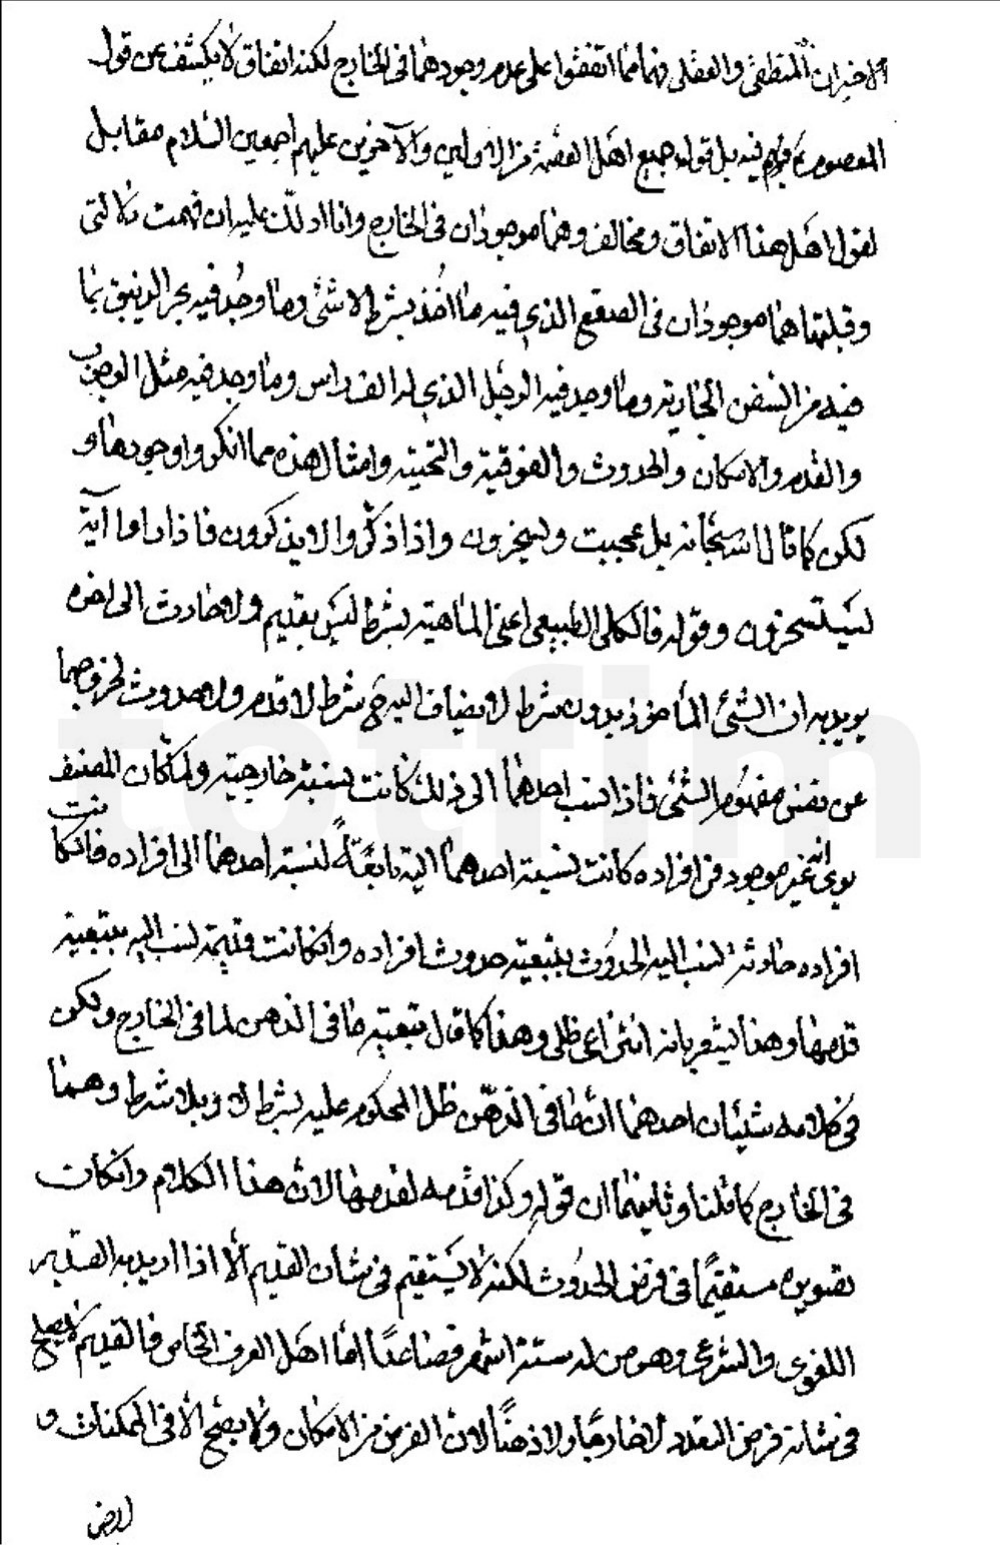 الاخيران المنطقى والعقلى فهما مما اتفقوا على عدم وجودهما فى الخارج لكنه اتفاق لا يكشف عن قول
المعصوم فيه بل قوله جميع اهل العصمة من الاولين والآخرين عليهم اجمعين السلام مقابل
لقول اهل هذا الاتفاق ومخالف وهما موجودان فى الخارج وانا ادلك عليه ان فهمت دلالتى
وقبلتها هما موجودان فى الصقع الذى فيه ما اخذ بشرط لا شئ وما وجد فيه بحر الزيبق بما
فيه من السفن الجارية وما وجد فيه الرجل الذى له الف راس وما وجد فيه مثل الوجوب
والقدم والامكان والحدوث والفوقية والتحتية وامثال هذه مما انكروا وجودها و
لكن كما قال سبحانه بل عجبت ويسخرون واذا ذكروا لا يذكرون فاذا راوا آية
يستسخرون وقوله فالكلى الطبيعى اعنى الماهية بشرط ليس بقديم ولا حادث الى اخره
يريد به ان الشئ الماخوذ بدون شرط لا يضاف اليه شرط لا قدم ولا حدوث لخروجهما
عن نفس مفهوم الشئ فاذا نسب احدهما الى ذلك كانت نسبة خارجية ولما كان المصنف
يرى انه غير موجود فى افراده كانت نسبة احدهما اليه تابعة لنسبة احدهما الى افراده فان كانت
افراده حادثة نسب اليه الحدوث بتبعية حدوث افراده وان كانت قديمة نسب اليه بتبعية
قدمها وهذا يشعر بانه انتزاعى ظلى وهذا كما قال بتبعية ما فى الذهن لما فى الخارج ولكن
فى كلامه شيئان احدهما ان ما فى الذهن ظل المحكوم عليه بشرط لا وبلا شرط وهما
فى الخارج كما قلنا وثانيهما ان قوله وكذا قدمه لقدمها لان هذا الكلام وان كان
تصويره مستقيما فى فرض الحدوث لكنه لا يستقيم فى شان القديم الا اذا اريد به القديم
اللغوى والشرعى وهو من له ستة اشهر فصاعدا اما اهل العرف الخاص فالقديم لا يصلح
فى شانه فرض التعدد لا خارجا ولا ذهنا لان الفرض من الامكان ولا يصح الا فى الممكنات و
لان